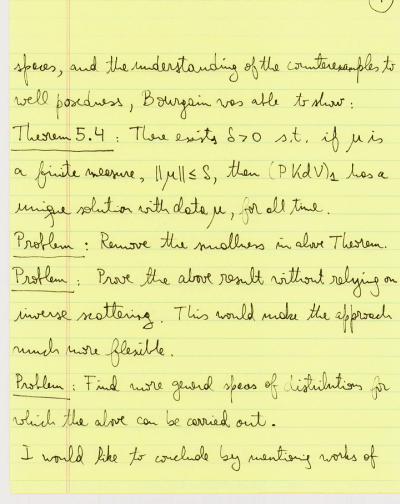 spaces, and the understanding of the counterexamples to
well posedness, Bourgain was able to show:
Theorem 5.4: There exists δ>0 s.t. if μ is
a finite measure, ||μ|| ≤ δ, then (PKdV)₁ has a
unique solution with data μ, for all time.
Problem: Remove the smallness in above Theorem.
Problem: Prove the above result without relying on
inverse scattering. This would make the approach
much more flexible.
Problem: Find more general spaces of distributions for
which the above can be carried out.
I would like to conclude by mentioning works of